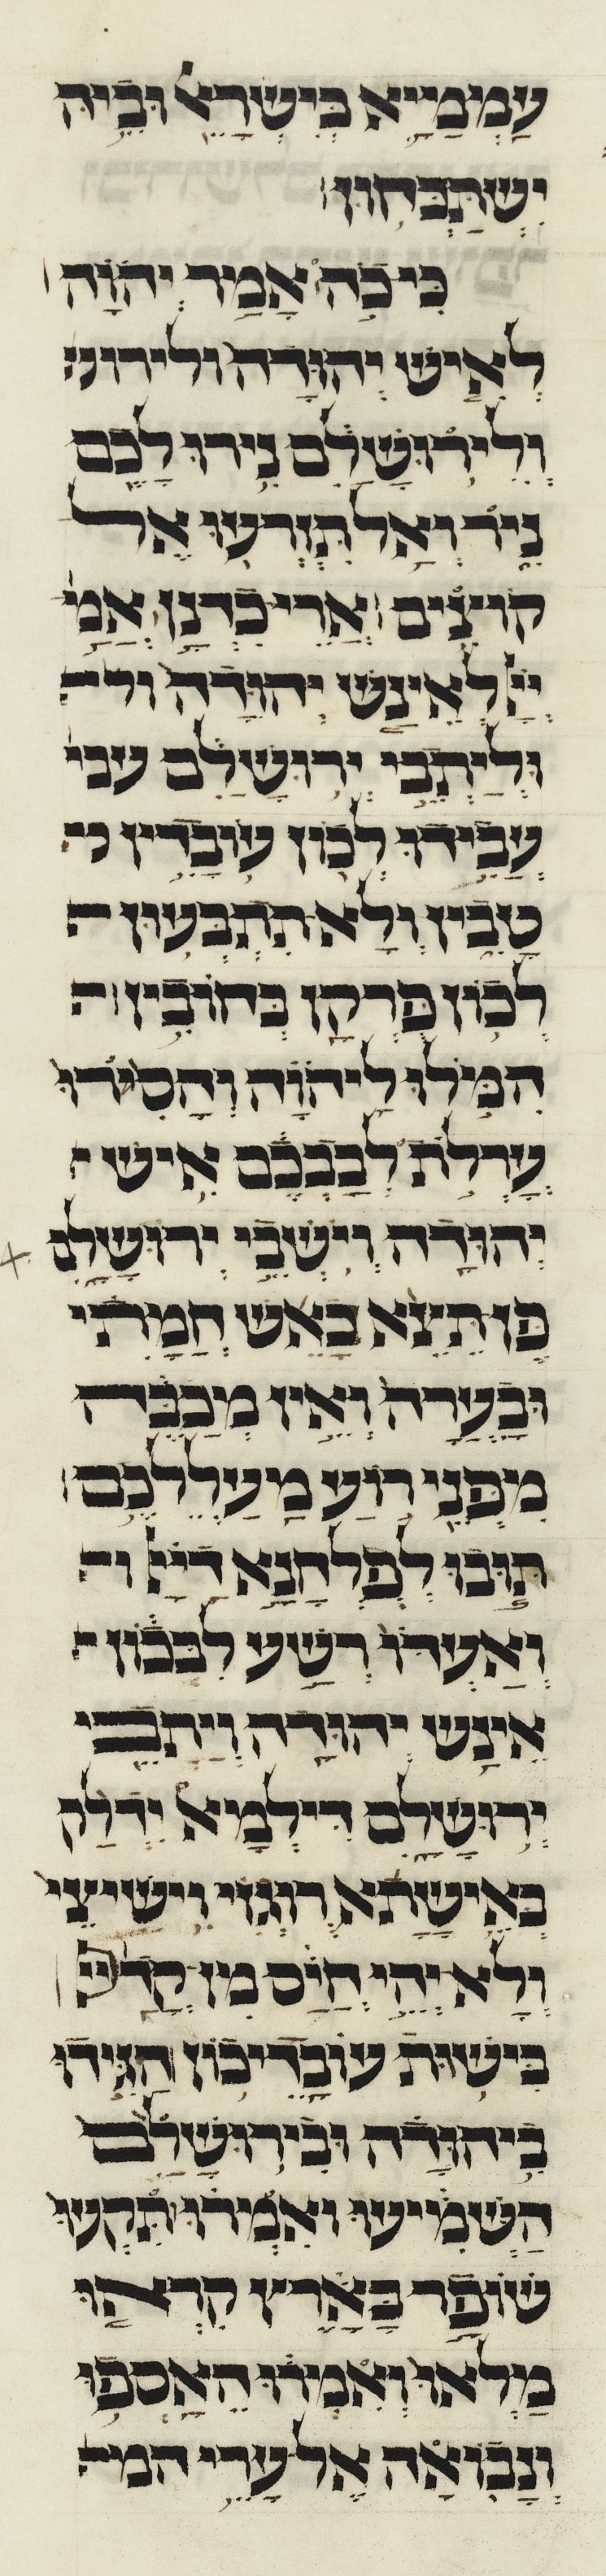 עַמְמַיָא בְיִשְרָאֵל וּבֵיה
יִשְתַבְחוּן
כִי כֹה אָמַר יְהוָה
לְאִיש יְהוּדָה ולירוש
וְלִירוּשָלִַם נִירוּ לָכֶם
נִיר וְאַל תִזְרְעוּ אֶל
קוֹצִים אֲרֵי כִדְנַן אֲמַ
יְיָ לֶאֱנָש יְהוּדָה ול
וּלְיָתְבֵי יְרוּשָלִַם עבי
עֲבִידוּ לְכוֹן עוֹבָדִין
טָבִין וְלָא תִתְבְעוּן
לְכוֹן פֻרְקָן בְחוֹבִין
הִמֹלוּ לַיהוָה וְהָסִירוּ
עָרְלוֹת לְבַבְכֶם אִיש
יְהוּדָה וְיֹשְבֵי יְרוּשָלִָם
פֶן תֵצֵא כָאֵש חֲמָתִי
וּבָעֲרָה וְאֵין מְכַבֶה
מִפְנֵי רוֹעַ מַעַלְלֵכֶם
תוּבוּ לְפֻלְחָנָא דַייָ
וְאַעְדוֹ רְשַע לִבְכוֹן
אֱנָש יְהוּדָה וְיָתְבֵי
יְרוּשָלִַם דִילְמָא יִדְלַק
כְאִישָתָא רוּגְזִי וִישֵיצֵי
וְלָא יְהֵי חֲיָס מִן קֳדָם
בִישוּת עוֹבָדֵיכוֹן הַגִידוּ
בִיהוּדָה וּבִירוּשָלִַם
הַשְמִיעוּ וְאִמְרוּ תִקְעוּ
שוֹפָר בָאָרֶץ קִרְאוּ
מַלְאוּ וְאִמְרוּ הֵאָסְפוּ
וְנָבוֹאָה אֶל עָרֵי המ